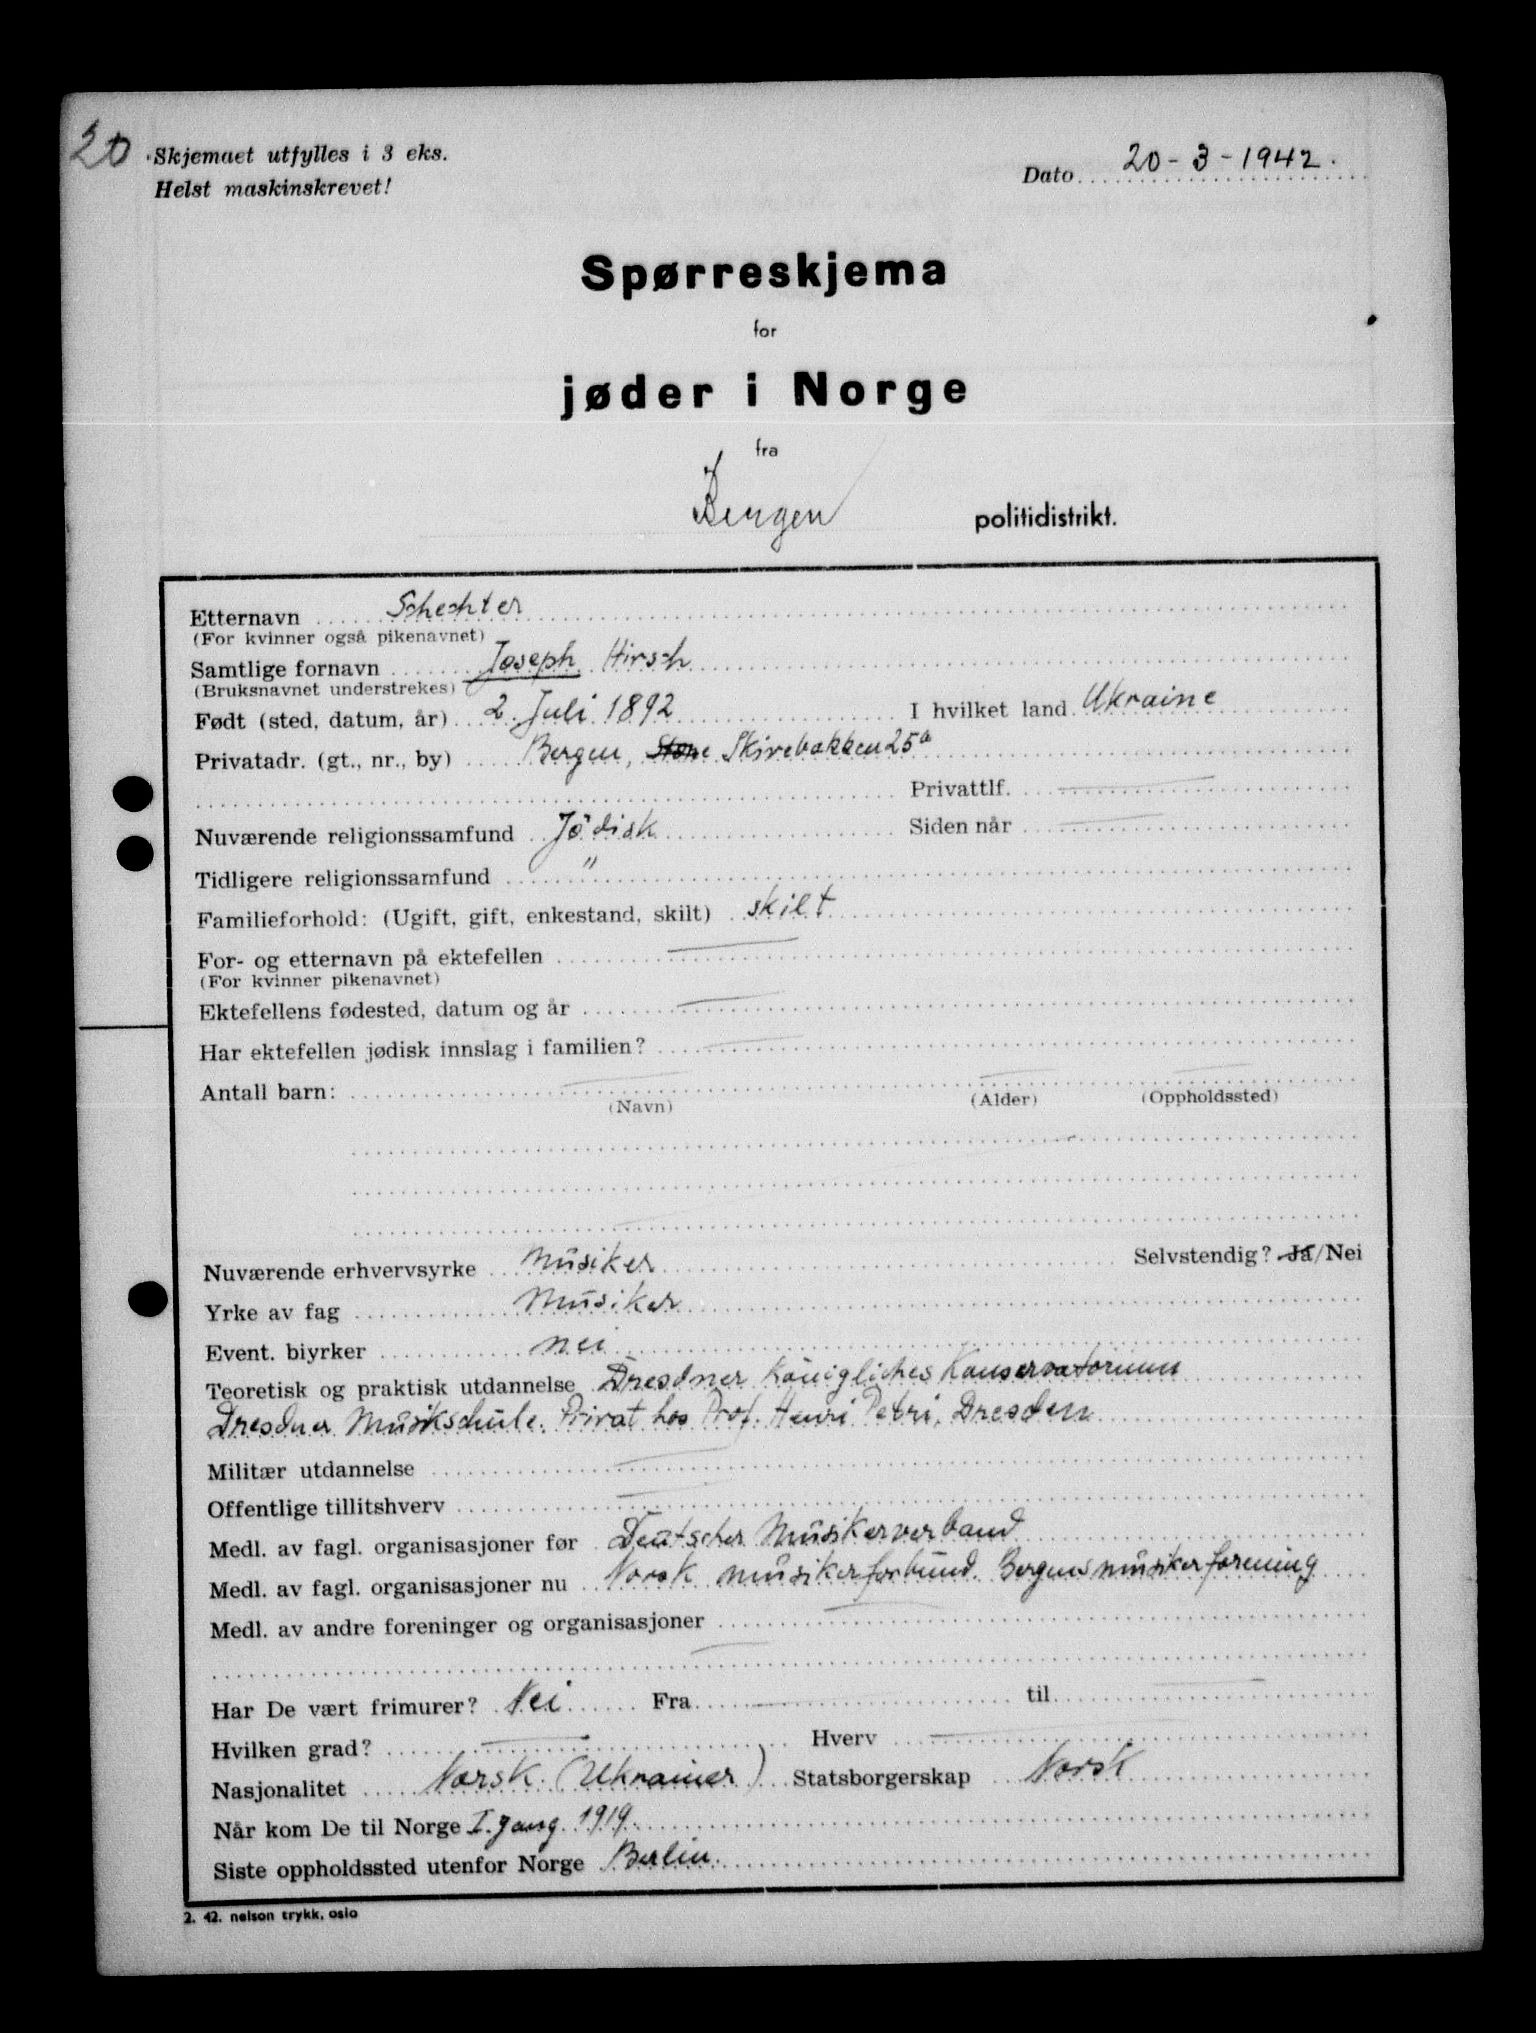 20
Skjemaet utfylles i 3 eks.
Helst maskinskrevet!
Dato 20-3-1942.
Spørreskjema
for
jøder i Norge
fra
Bergen politidistrikt.
Etternavn Schechter
(For kvinner også pikenavnet)
Samtlige fornavn Joseph Hirsch
(Bruksnavnet understrekes)
Født (sted, datum, år) 2. Juli 1892 I hvilket land Ukraine
Privatadr. (gt., nr., by) Bergen, Skivebakken 25a
Privattlf. —
Nuværende religionssamfund Jödisk Siden når —
Tidligere religionssamfund "
Familieforhold: (Ugift, gift, enkestand, skilt) skilt
For- og etternavn på ektefellen —
(For kvinner pikenavnet)
Ektefellens fødested, datum og år —
Har ektefellen jødisk innslag i familien? —
Antall barn: — — —
(Navn) (Alder) (Oppholdssted)
Nuværende erhvervsyrke Musiker Selvstendig? Ja/Nei
Yrke av fag Musiker
Event. biyrker nei
Teoretisk og praktisk utdannelse Dresdner Königliches Konservatorium
Dresdner Musikschule. Privat hos Prof. Henri Petri, Dresden
Militær utdannelse —
Offentlige tillitshverv —
Medl. av fagl. organisasjoner før Deutscher Musikerverband
Medl. av fagl. organisasjoner nu Norsk musikerforbund. Bergens musikerforening
Medl. av andre foreninger og organisasjoner —
—
Har De vært frimurer? Nei Fra — til —
Hvilken grad? — Hverv —
Nasjonalitet Norsk (Ukrainer) Statsborgerskap Norsk
Når kom De til Norge I. gang 1919.
Siste oppholdssted utenfor Norge Berlin.
2. 42. nelson trykk, oslo